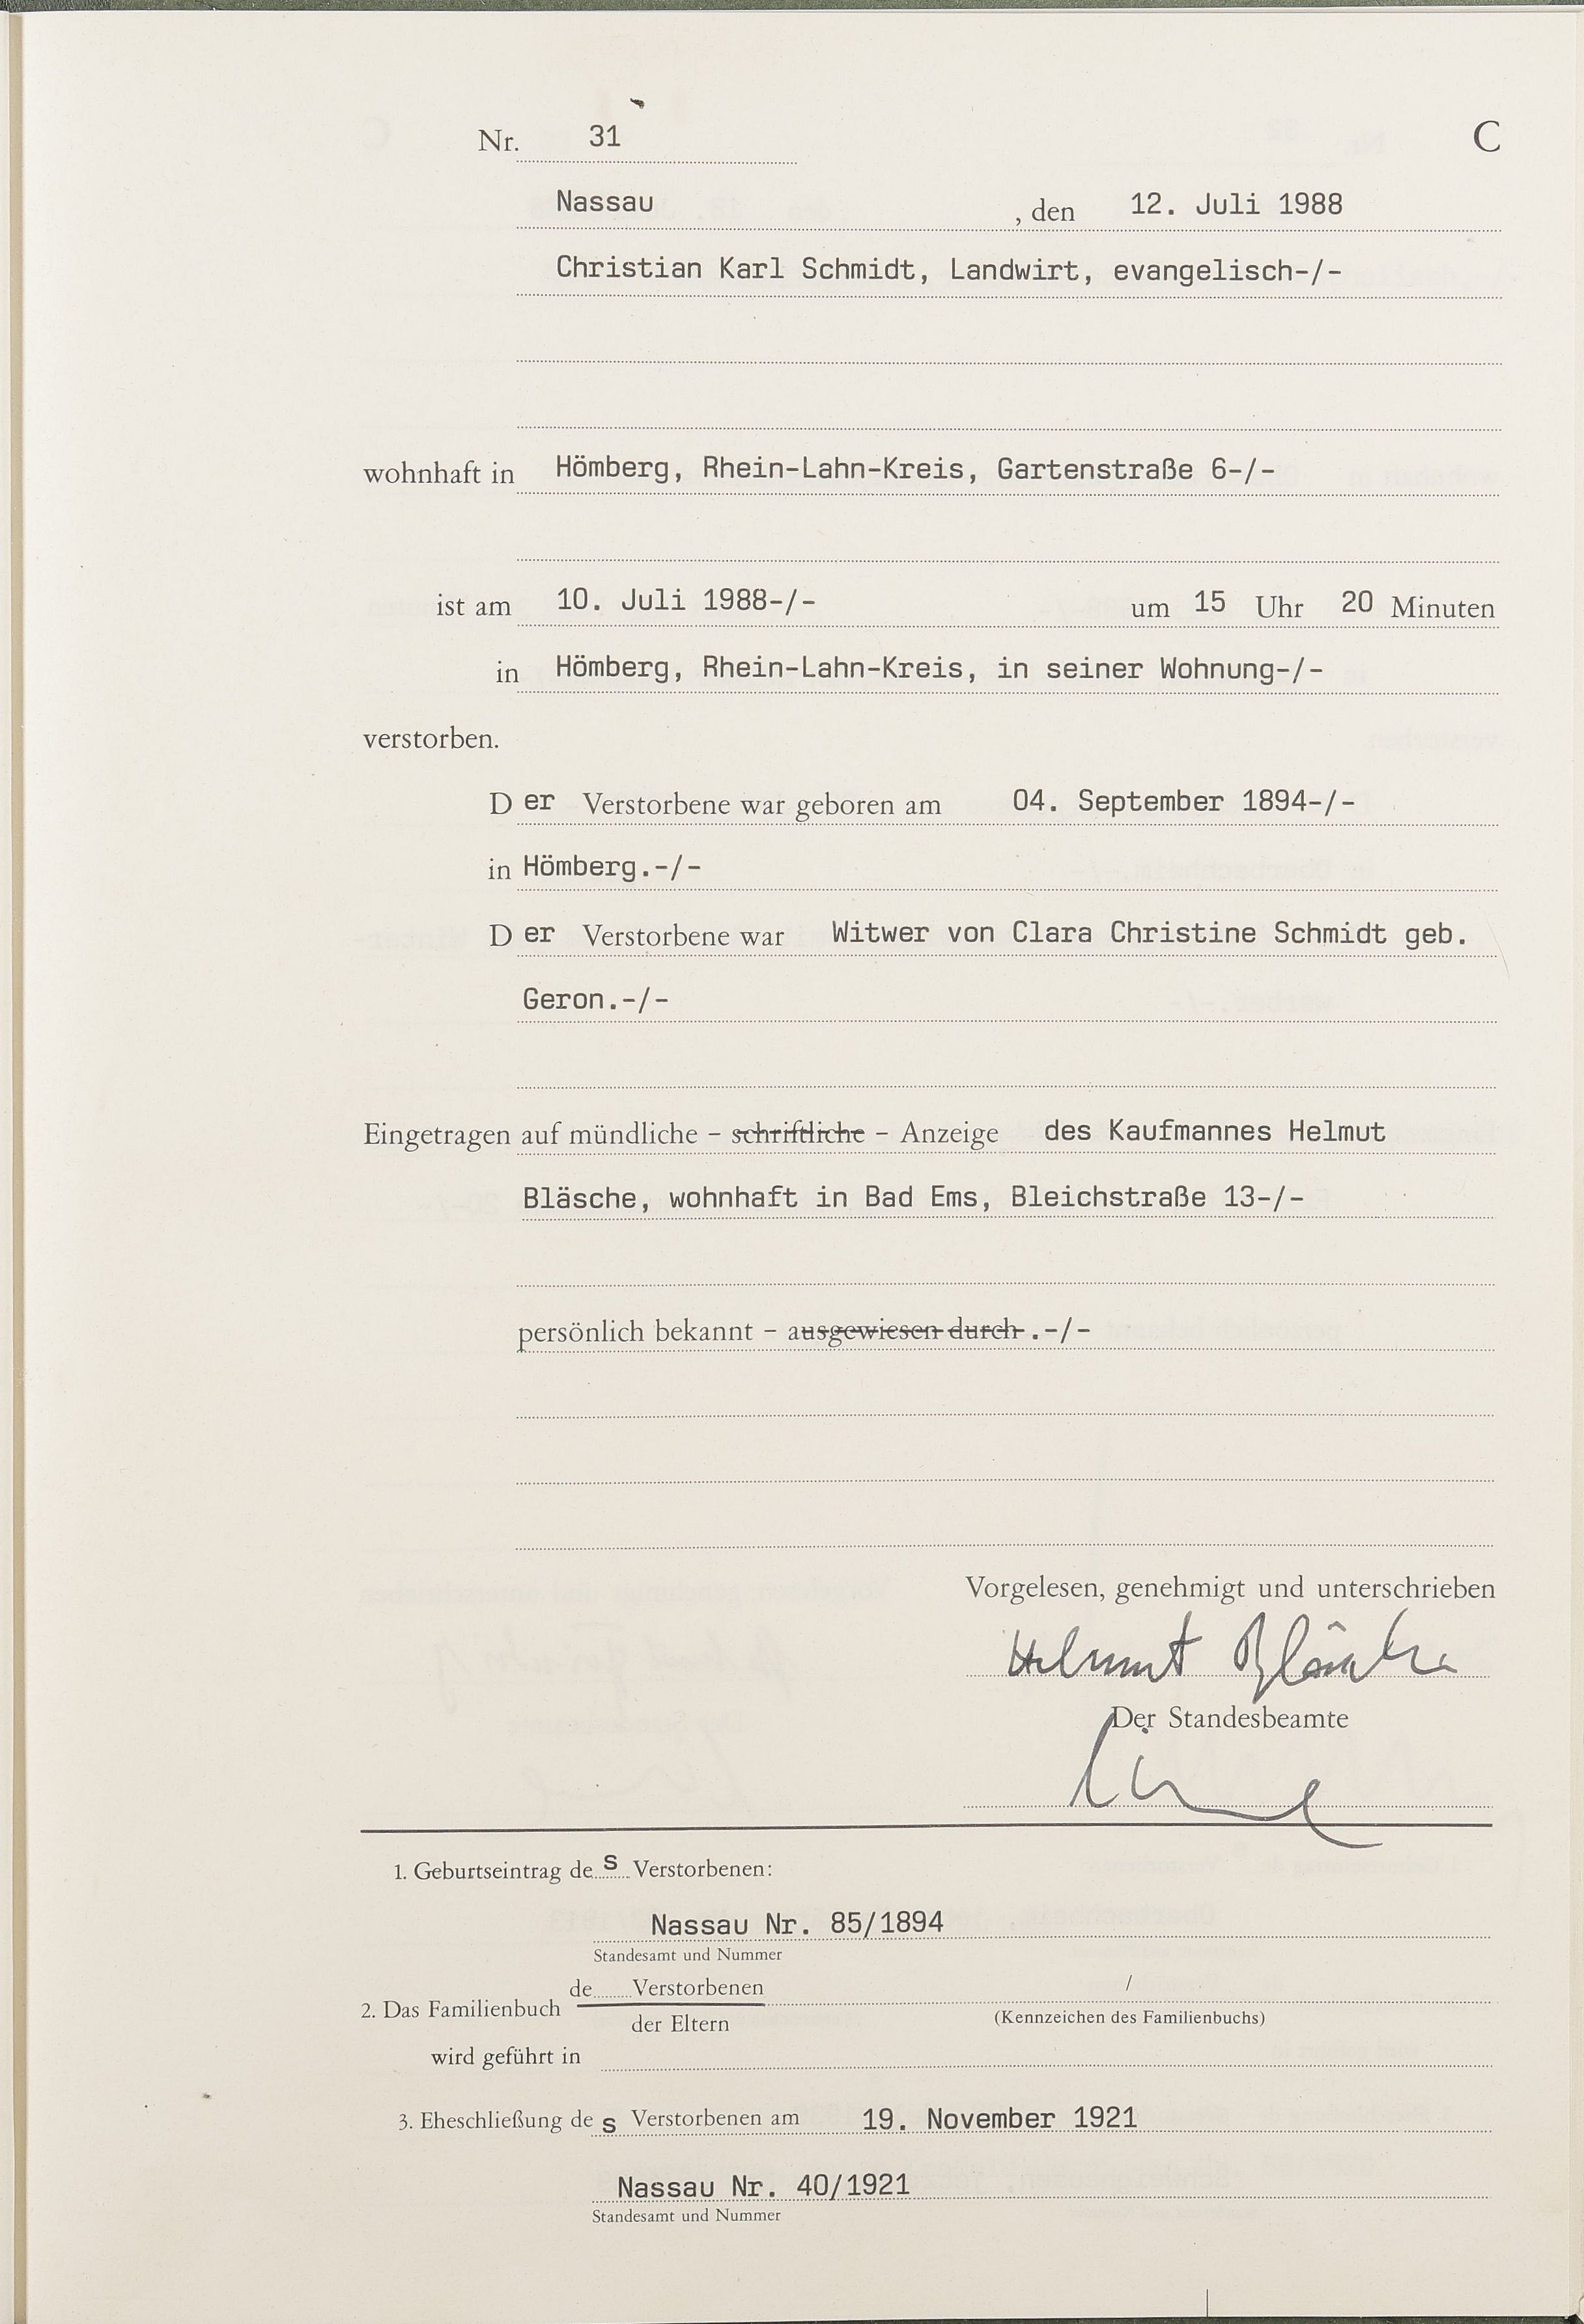 Nr. 31 C
Nassau , den 12. Juli 1988
Christian Karl Schmidt, Landwirt, evangelisch-/-
wohnhaft in Hömberg, Rhein-Lahn-Kreis, Gartenstraße 6-/-
ist am 10. Juli 1988-/- um 15 Uhr 20 Minuten
in Hömberg, Rhein-Lahn-Kreis, in seiner Wohnung-/-
verstorben.
D er Verstorbene war geboren am 04. September 1894-/-
in Hömberg.-/-
D er Verstorbene war Witwer von Clara Christine Schmidt geb.
Geron.-/-
Eingetragen auf mündliche - schriftliche - Anzeige des Kaufmannes Helmut
Bläsche, wohnhaft in Bad Ems, Bleichstraße 13-/-
persönlich bekannt - ausgewiesen durch .-/-
Vorgelesen, genehmigt und unterschrieben
Helmut Bläsche
Der Standesbeamte
1. Geburtseintrag des Verstorbenen:
Nassau Nr. 85/1894
Standesamt und Nummer
de Verstorbenen /
2. Das Familienbuch
der Eltern (Kennzeichen des Familienbuchs)
wird geführt in
3. Eheschließung des Verstorbenen am 19. November 1921
Nassau Nr. 40/1921
Standesamt und Nummer